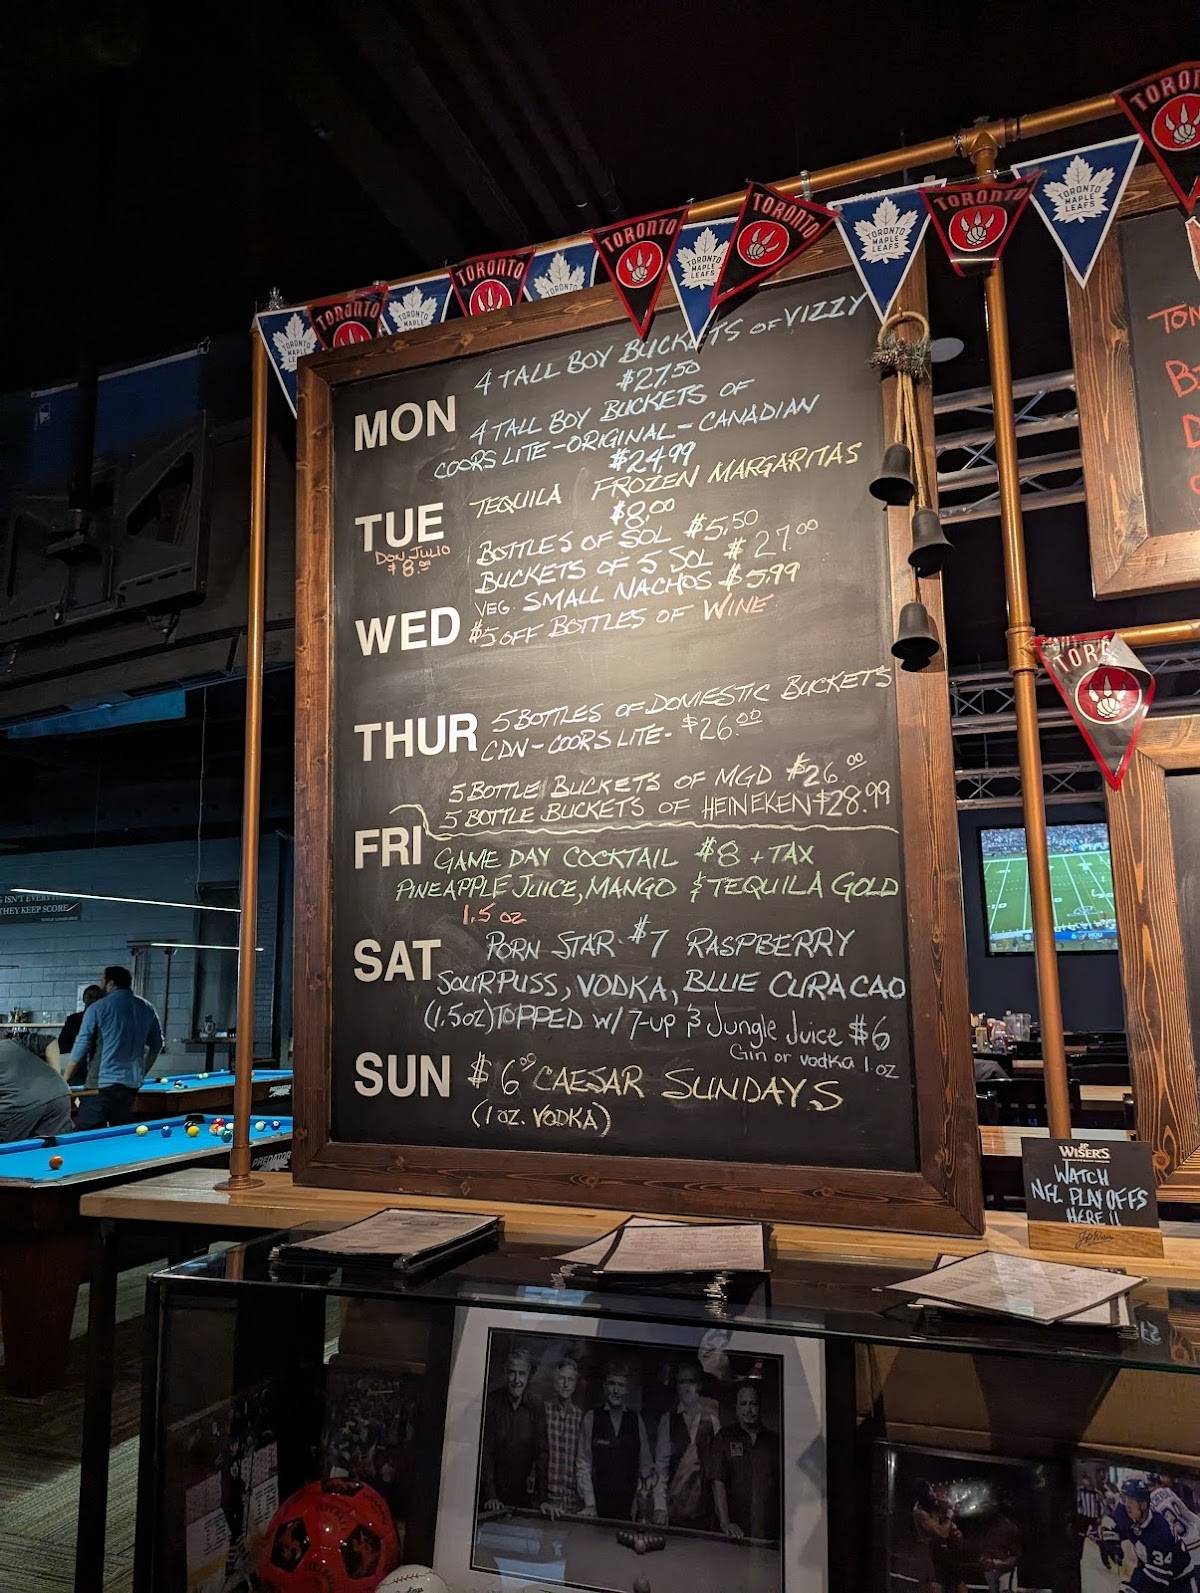 TORONTO
TORONTO MAPLE LEAFS
TORONTO
TORONTO MAPLE LEAFS
TORONTO
TORONTO MAPLE LEAFS
TORONTO
TORONTO
TORONTO MAPLE LEAFS
TORONTO
TORONTO MAPLE
TORONTO
TORONTO MAPLE LEAFS
4 TALL BOY BUCKETS OF VIZZY
$27.50
MON
4 TALL BOY BUCKETS OF
COORS LITE-ORIGINAL-CANADIAN
$24.99
TUE
TEQUILA FROZEN MARGARITAS
$8.00
DON JULIO
$8.00
BOTTLES OF SOL $5.50
BUCKETS OF 5 SOL $27.00
VEG. SMALL NACHOS $5.99
WED
$5 OFF BOTTLES OF WINE
THUR
5 BOTTLES OF DOMESTIC BUCKETS
CDN-COORS LITE- $26.00
5 BOTTLE BUCKETS OF MGD $26.00
5 BOTTLE BUCKETS OF HEINEKEN $28.99
FRI
GAME DAY COCKTAIL $8 + TAX
PINEAPPLE JUICE, MANGO & TEQUILA GOLD
1.5 oz
SAT
PORN STAR $7 RASPBERRY
SOURPUSS, VODKA, BLUE CURACAO
(1.5oz) TOPPED W/ 7-UP & Jungle Juice $6
Gin or vodka 1 oz
SUN
$6.00 CAESAR SUNDAYS
(1 oz. VODKA)
TOR
THEY KEEP SCORE
PREDATOR
J.P. WISER'S
WATCH
NFL PLAYOFFS
HERE !!
34